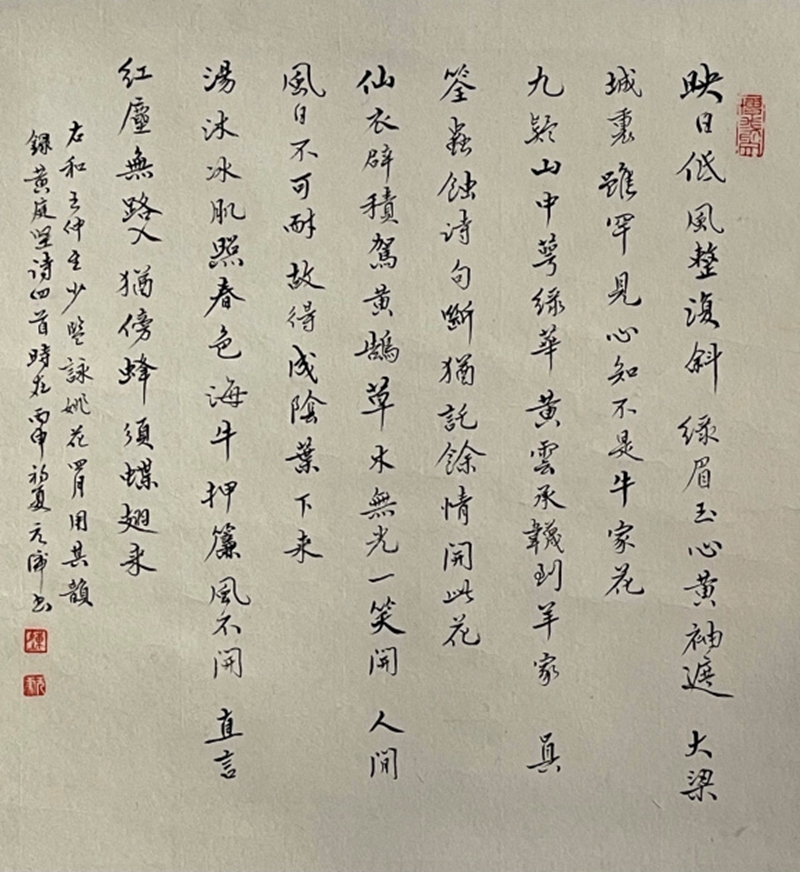 映日低風整復斜 綠眉玉心黃袖遮 大梁
城裏雖罕見心知不是牛家花
九疑山中萼綠華 黃雲承韈到羊家 真
筌蟲蝕詩句斷猶託餘情開此花
仙衣襞積駕黃鵠草木無光一笑開 人間
風日不可耐故得成陰葉下来
湯沐冰肌照春色海牛押簾風不開 直言
紅塵無路入猶傍蜂須蝶翅来
右和王仲至少監詠姚花四首用其韻
錄黃庭堅詩四首時在丙申初夏